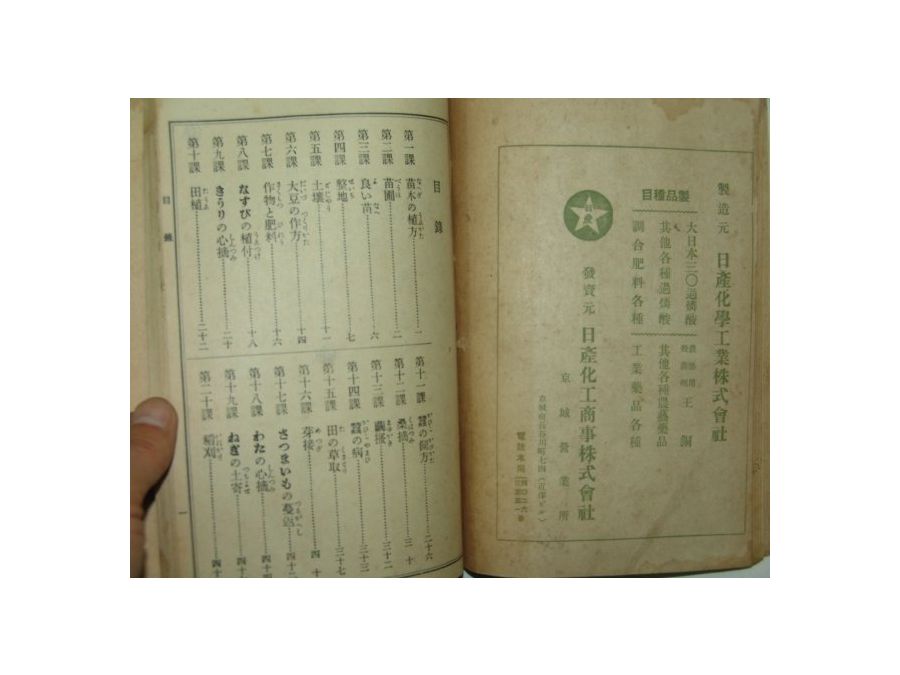 製造元 日產化學工業株式會社
製品種目
大日本三〇過燐酸
其他各種過燐酸
調合肥料各種
王銅
其他各種農藝藥品
工業藥品各種
發賣元 日產化工商事株式會社
京城營業所
目錄
第一課 苗木の植方 一
第二課 苗圃 二
第三課 良い苗 六
第四課 整地 七
第五課 土壤 十一
第六課 大豆の作方 十四
第七課 作物と肥料 十六
第八課 なすびの植付 十八
第九課 きうりの心摘 二十
第十課 田植 二十二
第十一課 蠶の飼方 二十六
第十二課 桑摘 三十
第十三課 繭搔 三十二
第十四課 蠶の病 三十三
第十五課 田の草取 三十七
第十六課 芽接 四十
第十七課 さつまいもの蔓返
第十八課 わたの心摘
第十九課 ねぎの土寄
第二十課 稻刈
目錄
一